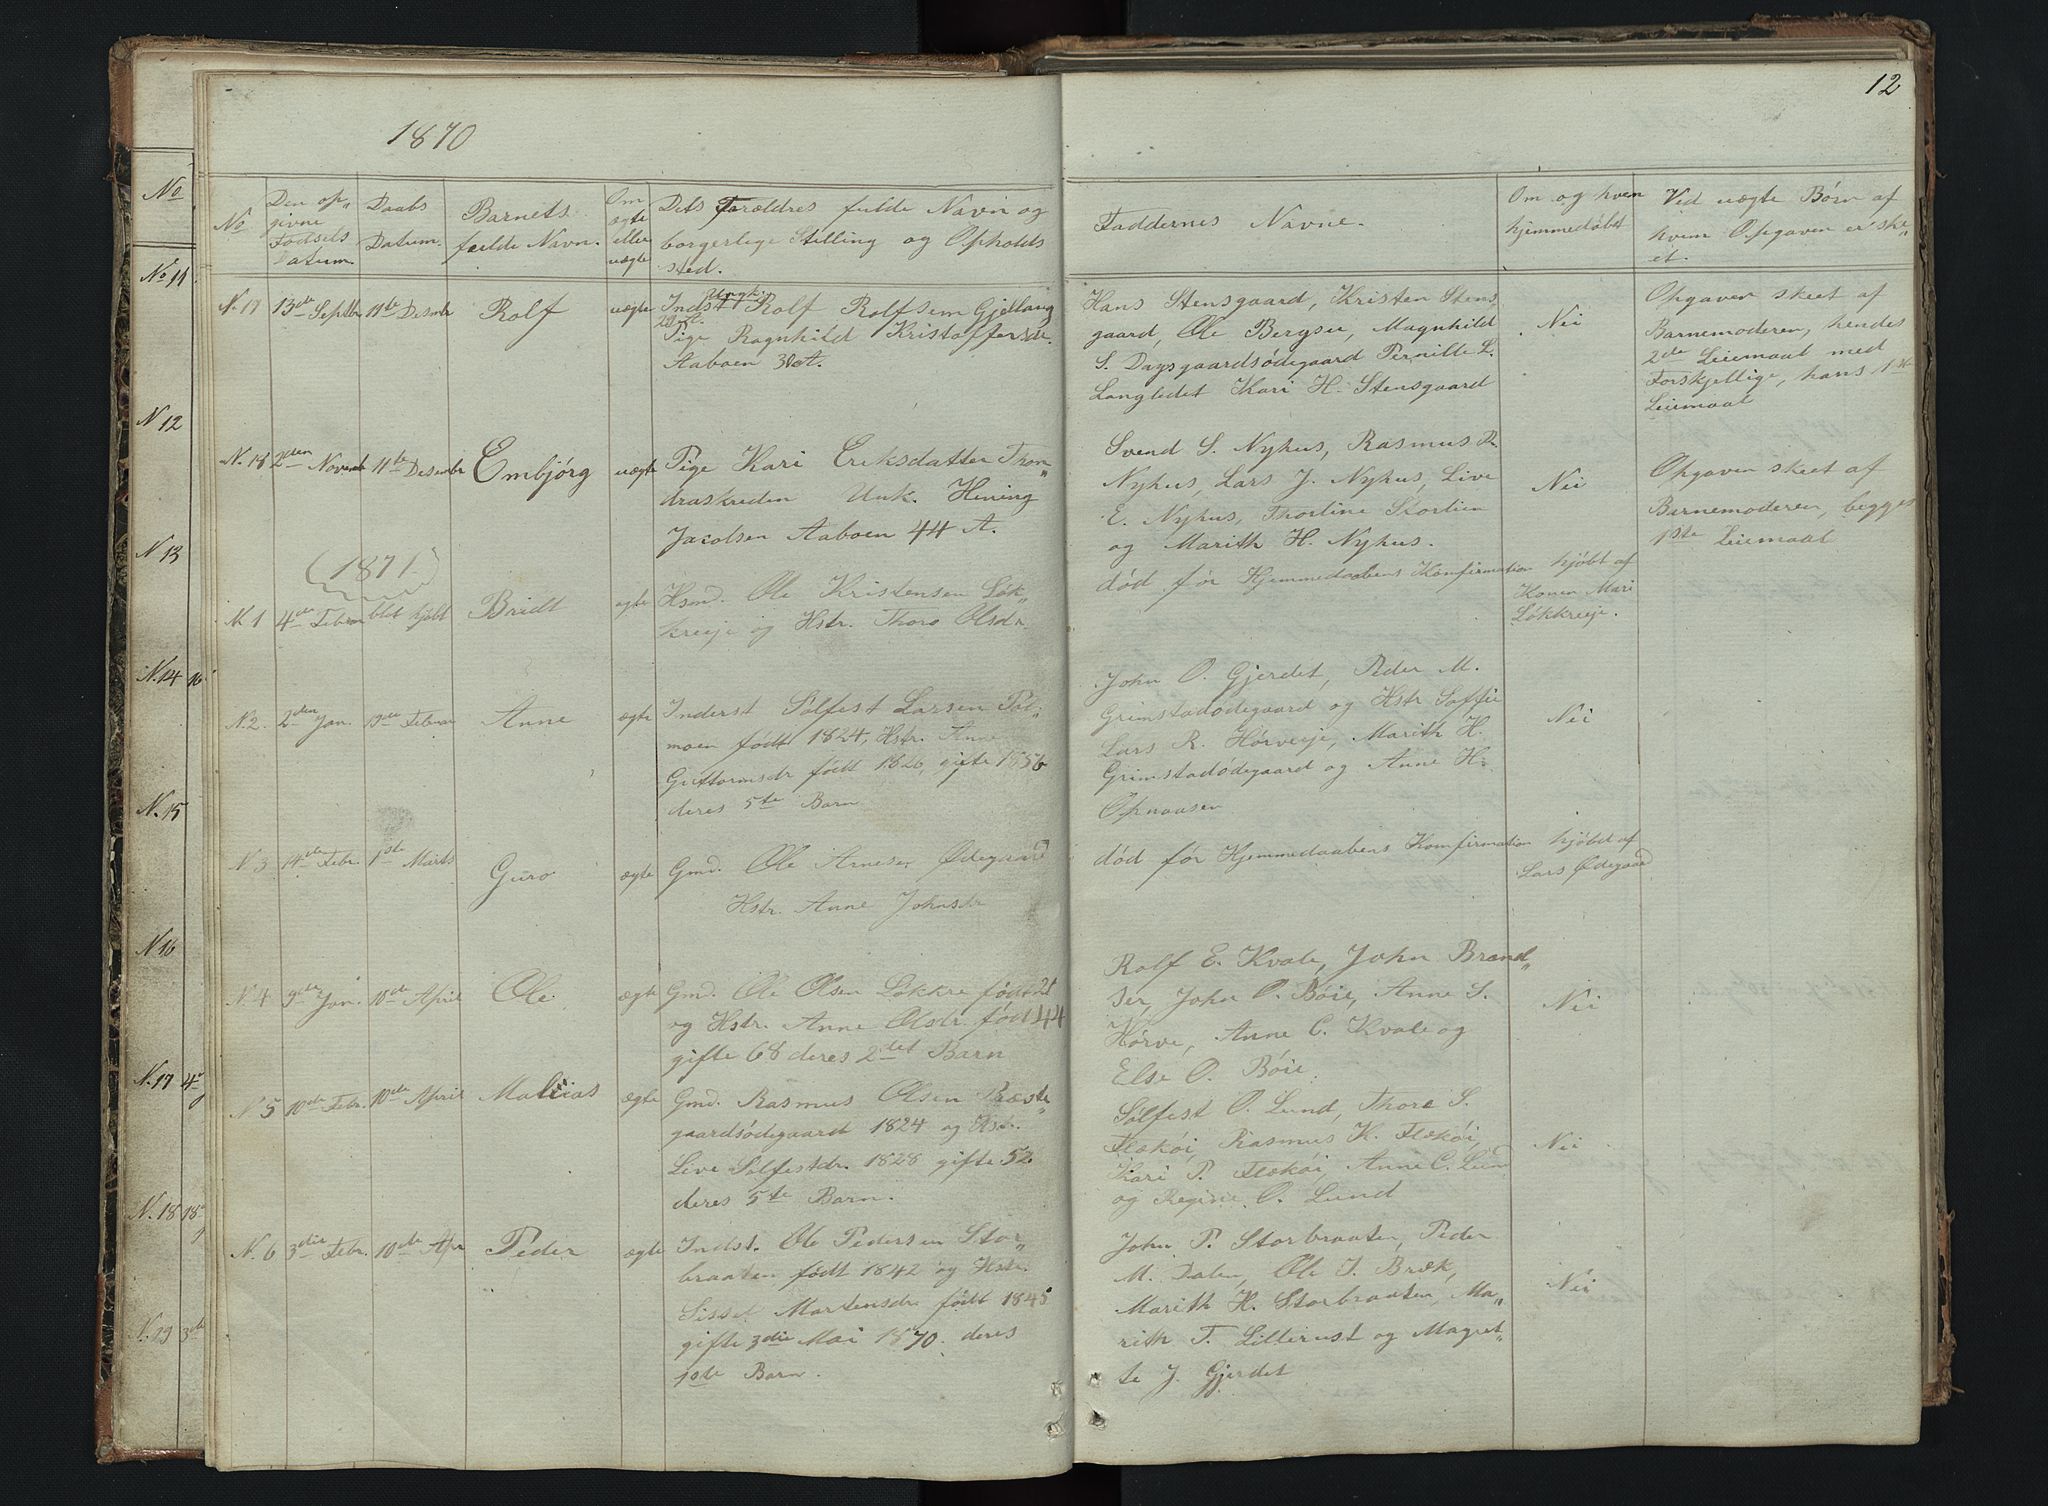 12
1870
No
Den op„
givne
Fødsels
Datum.
Daabs
Datum.
Barnets
fulde Navn.
Om
ægte
eller
uægte
Dets Forældres fulde Navn og
borgerlige Stilling og Opholds
sted.
Faddernes Navne.
Om og hvem
hjemmedøbt
Ved uægte Børn af
hvem Opgaven er ske„
et.
N. 17 13de Septbr 11te Desmbr Rolf uægte
Ungk.
Indst Rolf Rolfsen Gjellang
Pige Ragnhild Kristoffersdr.
Aaboen 30 A.
Hans Stensgaard, Kristen Stens
gaard, Ole Bergseu, Magnhild
S. Dagsgaardsødegaard Pernille L.
Langledet Kari H. Stensgaard
Nei
Opgaven skeet af
Barnemoderen, hendes
2de Leiemaal med
Forskjellige, hans 1ste
Leiemaal
N. 18 2den Novemb 11te Desembr Embjörg uægte
Pige Kari Eriksdatter Thon„
draskreden Unk. Hening
Jacolsen Aaboen 44 A.
Svend S. Nyhus, Rasmus R.
Nyhus, Lars J. Nyhus, Live
E. Nyhus, Thorline Skorlien
og Marith H. Nyhus.
Nei
Opgaven skeet af
Barnemoderen, begges
1ste Leiemaal
(1871.)
N. 1 4de Febru blot hjdbt Bridt ægte
Hsmd. Ole Kristensen Løk„
kreeje og Hstr. Thoro Olsdr.
död før Hjemmedaabens Konfirmation hjdbt af
Konen Mari
Løkkreeje.
N. 2. 2den Jan. 19de Februar Anne ægte
Inderst Sölfest Larsen Pöl„
moen født 1824, Hstr. Anne
Guttormsdr født 1826, gifte 1856
deres 5te Barn
John O. Gjerdet, Peder M.
Grimstadødegaard og Hstr Soffie
Lars R. Hörveeje, Marith H.
Grimstadødegaard og Anne H.
Opnaasen
Nei
N. 3 14de Febr. 1ste Marts Guro ægte
Gmd. Ole Arnesen Ødegaard
Hstr. Anne Johnsdr
död før Hjemmedaabens Konfirmation hjdbt af
Lars Ødegaard
N. 4 9de Jan. 10de April Ole ægte
Gmd. Ole Olsen Løkkre født 21
og Hstr. Anne Olsdr. født 44
gifte 68 deres 2det Barn
Rolf E. Kvale, John Brænd„
ser, John O. Böie, Anne S.
Hörve, Anne C. Kvale og
Else O. Böie.
Nei
N. 5 10de Febr. 10de April Matias ægte
Gmd. Rasmus Olsen Præste„
gaardsødegaard 1824 og Hstr.
Live Sølfestdr. 1828 gifte 52
deres 5te Barn.
Sölfest O. Lund, Thore S.
Flækøi, Rasmus K. Flækøi,
Kari P. Flækøi, Anne C. Lund
og Regine O. Lund
Nei
N. 6 3die Febr. 10de Apr Peder ægte
Indst. Ole Pedersen Stor„
braaten født 1842 og Hstr.
Sisset Martensdr født 1845
gifte 3die Mai 1870. deres
1ste Barn.
John P. Storbraaten, Peder
M. Dalen, Ole I. Bræk,
Marith H. Storbraaten, Ma„
rith T. Lillerust og Magret„
te J. Gjerdet
Nei
No
No 11
N 12
N 13
N. 14 16
N. 15
N. 16
N. 17 4
N. 18 18
N. 19 3de